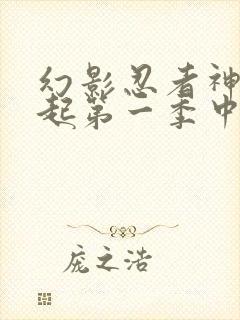 幻影忍者神
起第一季中
庞之浩